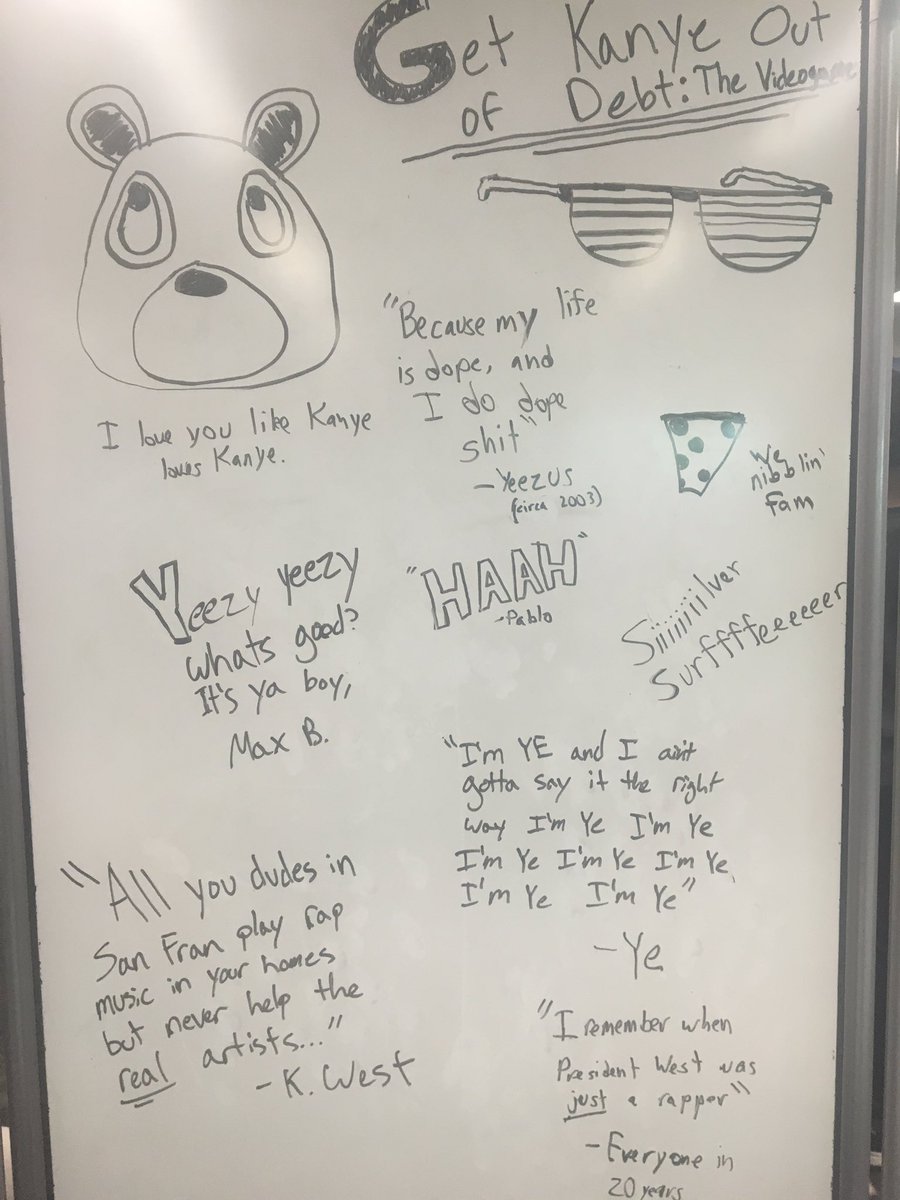 Get Kanye Out
of Debt: The Videogame
I love you like Kanye
loves Kanye.
"Because my life
is dope, and
I do dope
shit"
- Yeezus
(circa 2003)
We
nibblin'
fam
Yeezy yeezy
whats good?
It's ya boy,
Max B.
"HAAH"
-Pablo
Siiiiiiilver
Surffffeeeeeer
"I'm YE and I ain't
gotta say it the right
way I'm Ye I'm Ye
I'm Ye I'm Ye I'm Ye
I'm Ye I'm Ye"
-Ye
"All you dudes in
San Fran play rap
music in your homes
but never help the
real artists..."
- K. West
"I remember when
President West was
just a rapper"
- Everyone in
20 years